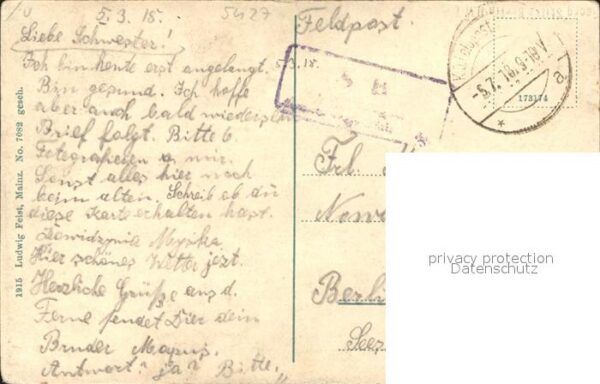 5.3.18. 5427
Feldpost.
Liebe Schwester!
Ich bin heute erst angelangt. 5.3.18.
Bin gesund. Ich hoffe
aber auch bald wiedersehn
Brief folgt. Bitte 6
Fotografieen v. mir.
Sonst alles hier noch
beim alten. Schreib ob du
diese Karte erhalten hast.
Hier schönes Wetter jezt.
Herzliche Grüße aus d.
Ferne sendet Dier dein
Bruder
Antwort? ja? Bitte.
1915 Ludwig Feist, Mainz. No. 7082 gesch.
-5.7.18.9-10V
a
173174
Frl
Nowa
Berli
See
privacy protection
Datenschutz